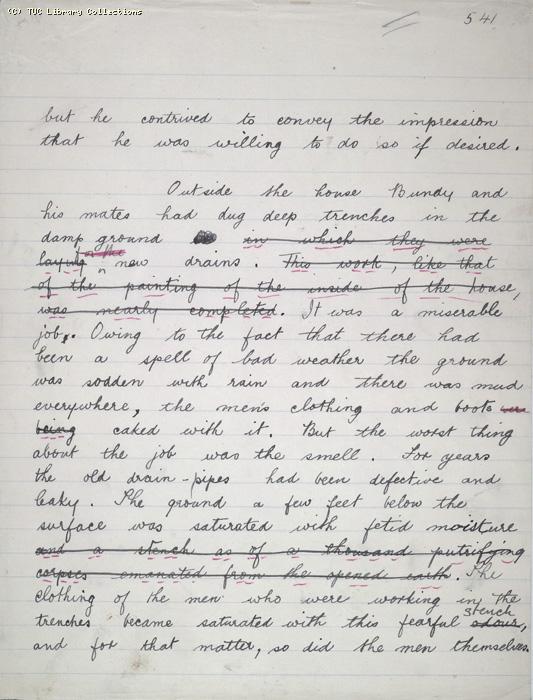 (C) TUC Library Collections
541
but he contrived to convey the impression
that he was willing to do so if desired.
Outside the house Bundy and
his mates had dug deep trenches in the
damp ground in which they were
laying for the new drains. This work, like that
of the painting of the inside of the house,
was nearly completed. It was a miserable
job. Owing to the fact that there had
been a spell of bad weather the ground
was sodden with rain and there was mud
everywhere, the men's clothing and boots were
being caked with it. But the worst thing
about the job was the smell. For years
the old drain-pipes had been defective and
leaky. The ground a few feet below the
surface was saturated with fetid moisture
and a stench as of a thousand putrifying
corpses emanated from the opened earth. The
clothing of the men who were working in the
trenches became saturated with this fearful stench odour,
and for that matter, so did the men themselves.